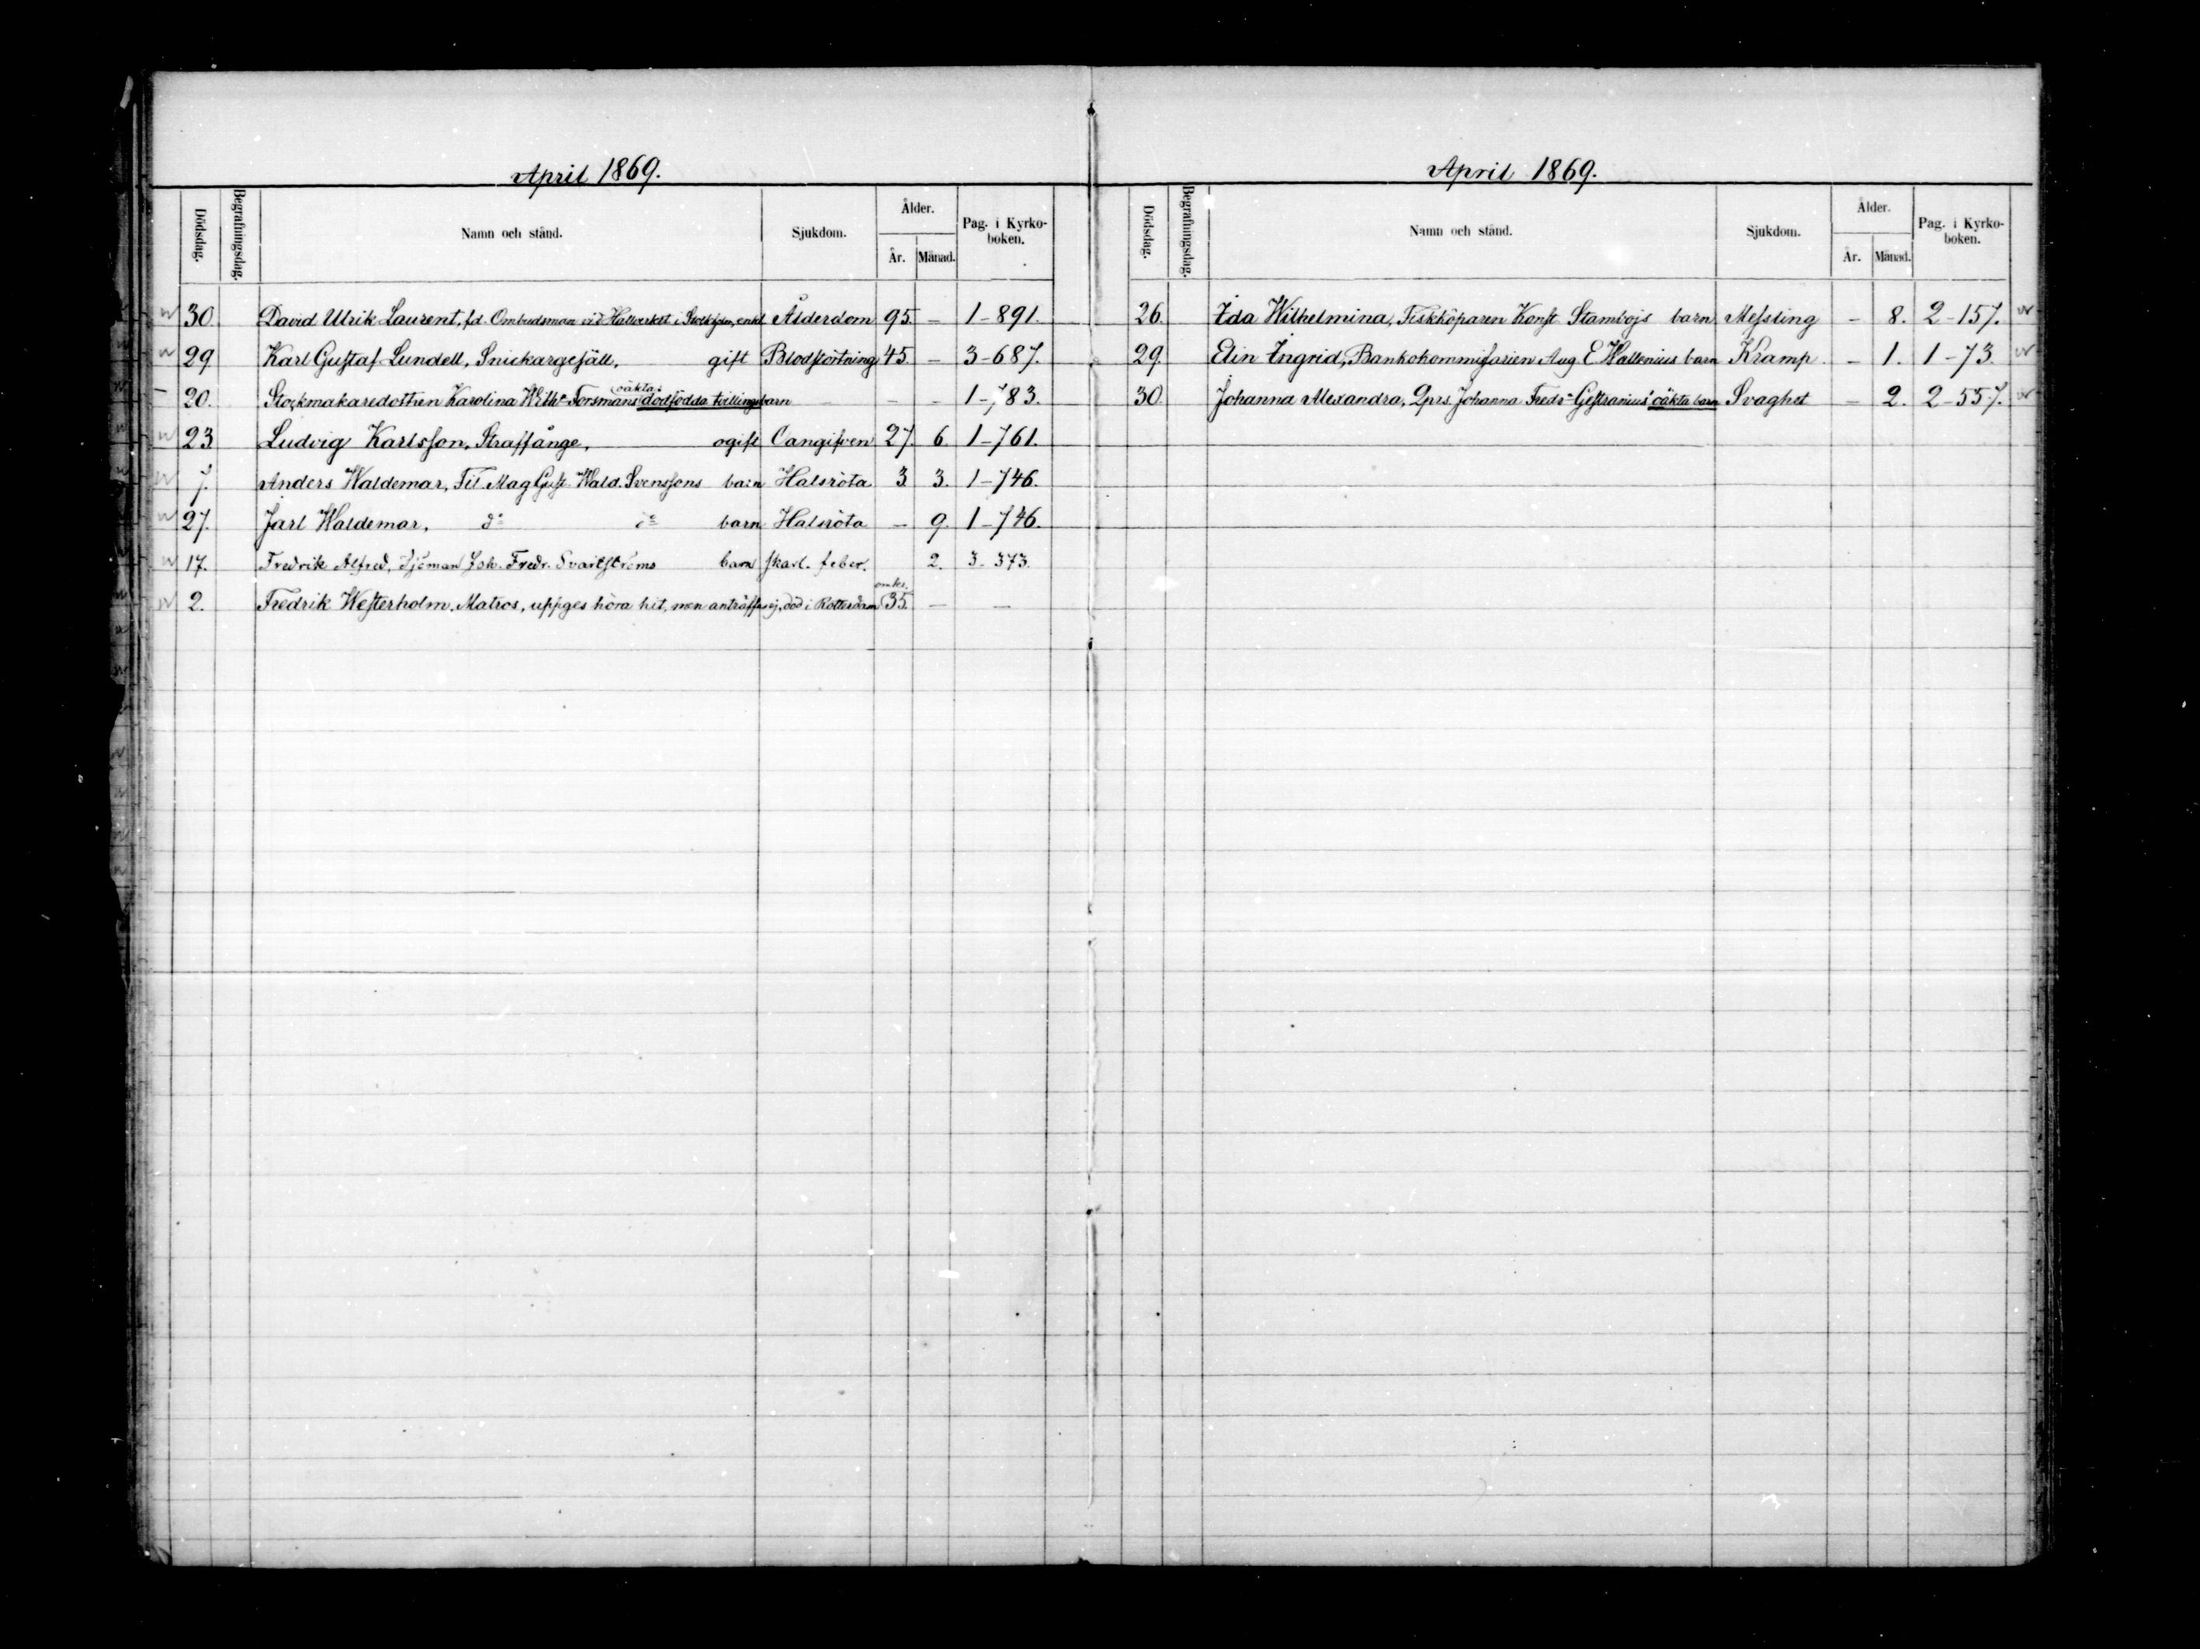 April 1869.
Dödsdag. Begrafningsdag. Namn och stånd. Sjukdom. Ålder. År. Månad. Pag. i Kyrkoboken.
30 David Ulrik Laurent, fd. Ombudsman vid Hallverket i Stockholm, enkl Ålderdom 95. — 1-891.
29 Karl Gustaf Lundell, Snickargesäll, gift Blodstörtning 45. — 3-687.
20. Stockmakaredottren Karolina Wilh:a Forsmans oäkta dödfödda tvillingebarn — — — 1-783.
23 Ludvig Karlsson, Straffånge, ogift Oangifven 27. 6. 1-761.
7. Anders Waldemar, Fil. Mag Gust. Wald. Svenssons barn Halsröta 3. 3. 1-746.
27. Jarl Waldemar, d:o d:o barn Halsröta — 9. 1-746.
17. Fredrik Alfred, Sjöman Joh. Fredr. Svartströms barn skarl. feber. 2. 3-373.
2. Fredrik Westerholm, Matros, uppges höra hit, men anträffas ej, död i Rotterdam omkr. 35. — —
April 1869.
Dödsdag. Begrafningsdag. Namn och stånd. Sjukdom. Ålder. År. Månad. Pag. i Kyrkoboken.
26. Ida Wilhelmina, Fiskköparen Konst. Stambojs barn Messling — 8. 2-157.
29. Elin Ingrid, Bankokommissarien Aug. E Hallenius barn Kramp — 1. 1-73.
30. Johanna Alexandra, Qprs. Johanna Fredr:a Gestranius' oäkta barn Svaghet — 2. 2-557.